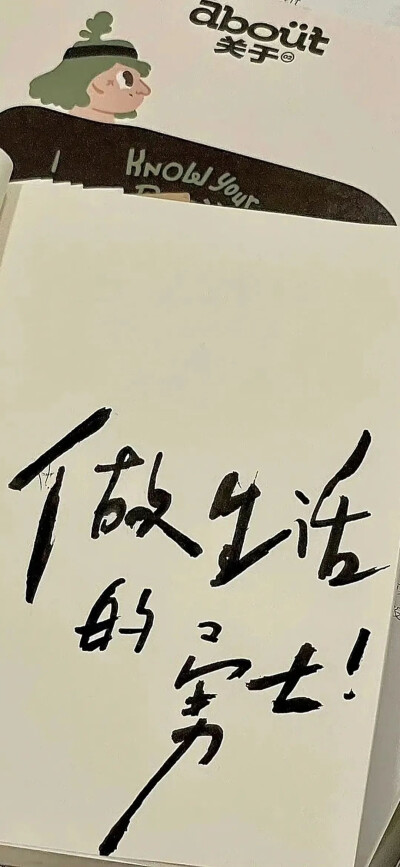 about
关于
KNOW YOUR
做生活
的勇士!